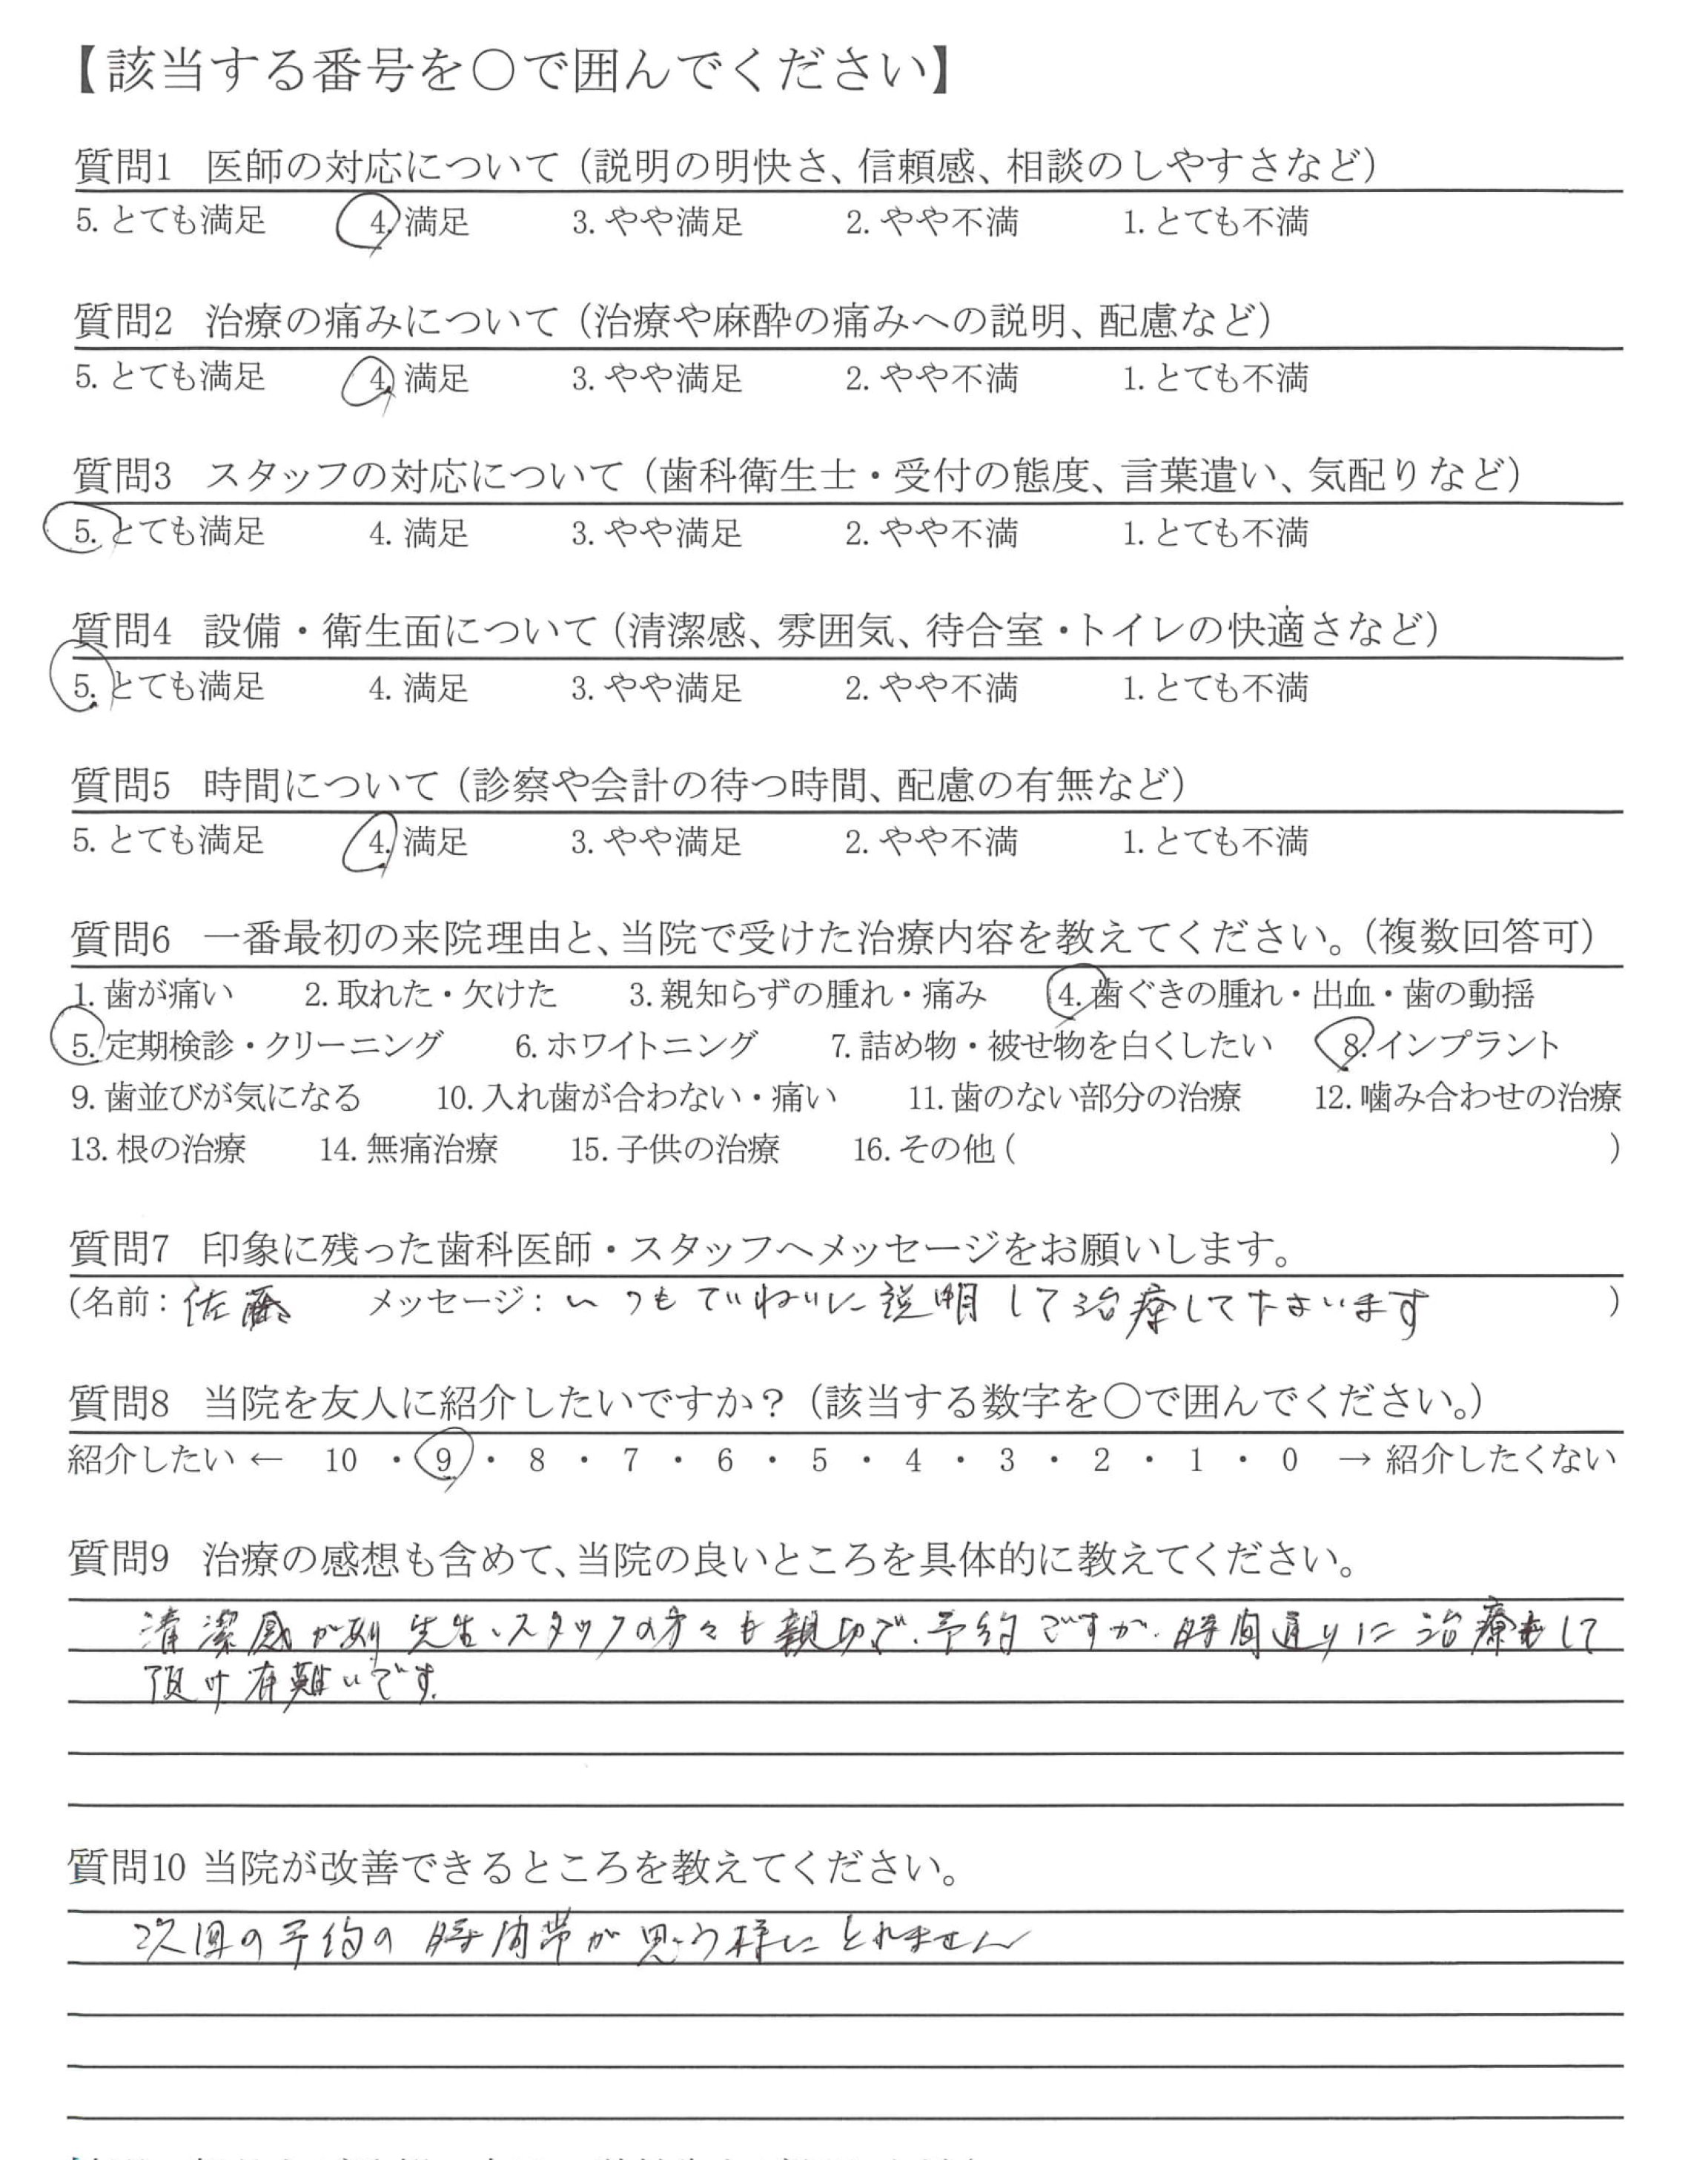 【該当する番号を○で囲んでください】
質問1 医師の対応について（説明の明快さ、信頼感、相談のしやすさなど）
5. とても満足 4. 満足 3. やや満足 2. やや不満 1. とても不満
質問2 治療の痛みについて（治療や麻酔の痛みへの説明、配慮など）
5. とても満足 4. 満足 3. やや満足 2. やや不満 1. とても不満
質問3 スタッフの対応について（歯科衛生士・受付の態度、言葉遣い、気配りなど）
5. とても満足 4. 満足 3. やや満足 2. やや不満 1. とても不満
質問4 設備・衛生面について（清潔感、雰囲気、待合室・トイレの快適さなど）
5. とても満足 4. 満足 3. やや満足 2. やや不満 1. とても不満
質問5 時間について（診察や会計の待つ時間、配慮の有無など）
5. とても満足 4. 満足 3. やや満足 2. やや不満 1. とても不満
質問6 一番最初の来院理由と、当院で受けた治療内容を教えてください。（複数回答可）
1. 歯が痛い 2. 取れた・欠けた 3. 親知らずの腫れ・痛み 4. 歯ぐきの腫れ・出血・歯の動揺
5. 定期検診・クリーニング 6. ホワイトニング 7. 詰め物・被せ物を白くしたい 8. インプラント
9. 歯並びが気になる 10. 入れ歯が合わない・痛い 11. 歯のない部分の治療 12. 噛み合わせの治療
13. 根の治療 14. 無痛治療 15. 子供の治療 16. その他 ( )
質問7 印象に残った歯科医師・スタッフへメッセージをお願いします。
(名前： 佐藤 メッセージ： いつもていねいに説明して治療して下さいます )
質問8 当院を友人に紹介したいですか？（該当する数字を○で囲んでください。）
紹介したい ← 10 ・ 9 ・ 8 ・ 7 ・ 6 ・ 5 ・ 4 ・ 3 ・ 2 ・ 1 ・ 0 → 紹介したくない
質問9 治療の感想も含めて、当院の良いところを具体的に教えてください。
清潔感が有り 先生、スタッフの方々も親切で、予約ですが、時間通りに治療をして
頂け有難いです。
質問10 当院が改善できるところを教えてください。
次回の予約の時間帯が思う様にとれません